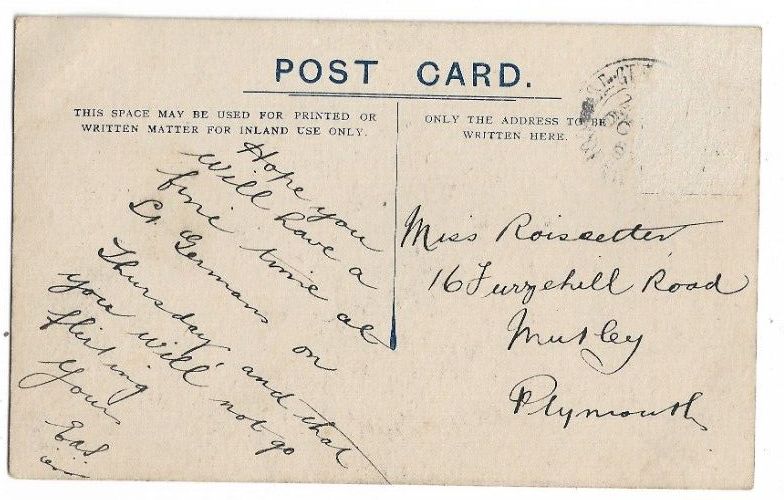 POST CARD.
THIS SPACE MAY BE USED FOR PRINTED OR
WRITTEN MATTER FOR INLAND USE ONLY.
ONLY THE ADDRESS TO BE
WRITTEN HERE.
Hope you
will have a
fine time at
St. Germans on
Thursday and that
you will not go
flirting
Yours
Miss Roissetter
16 Furzehill Road
Mutley
Plymouth